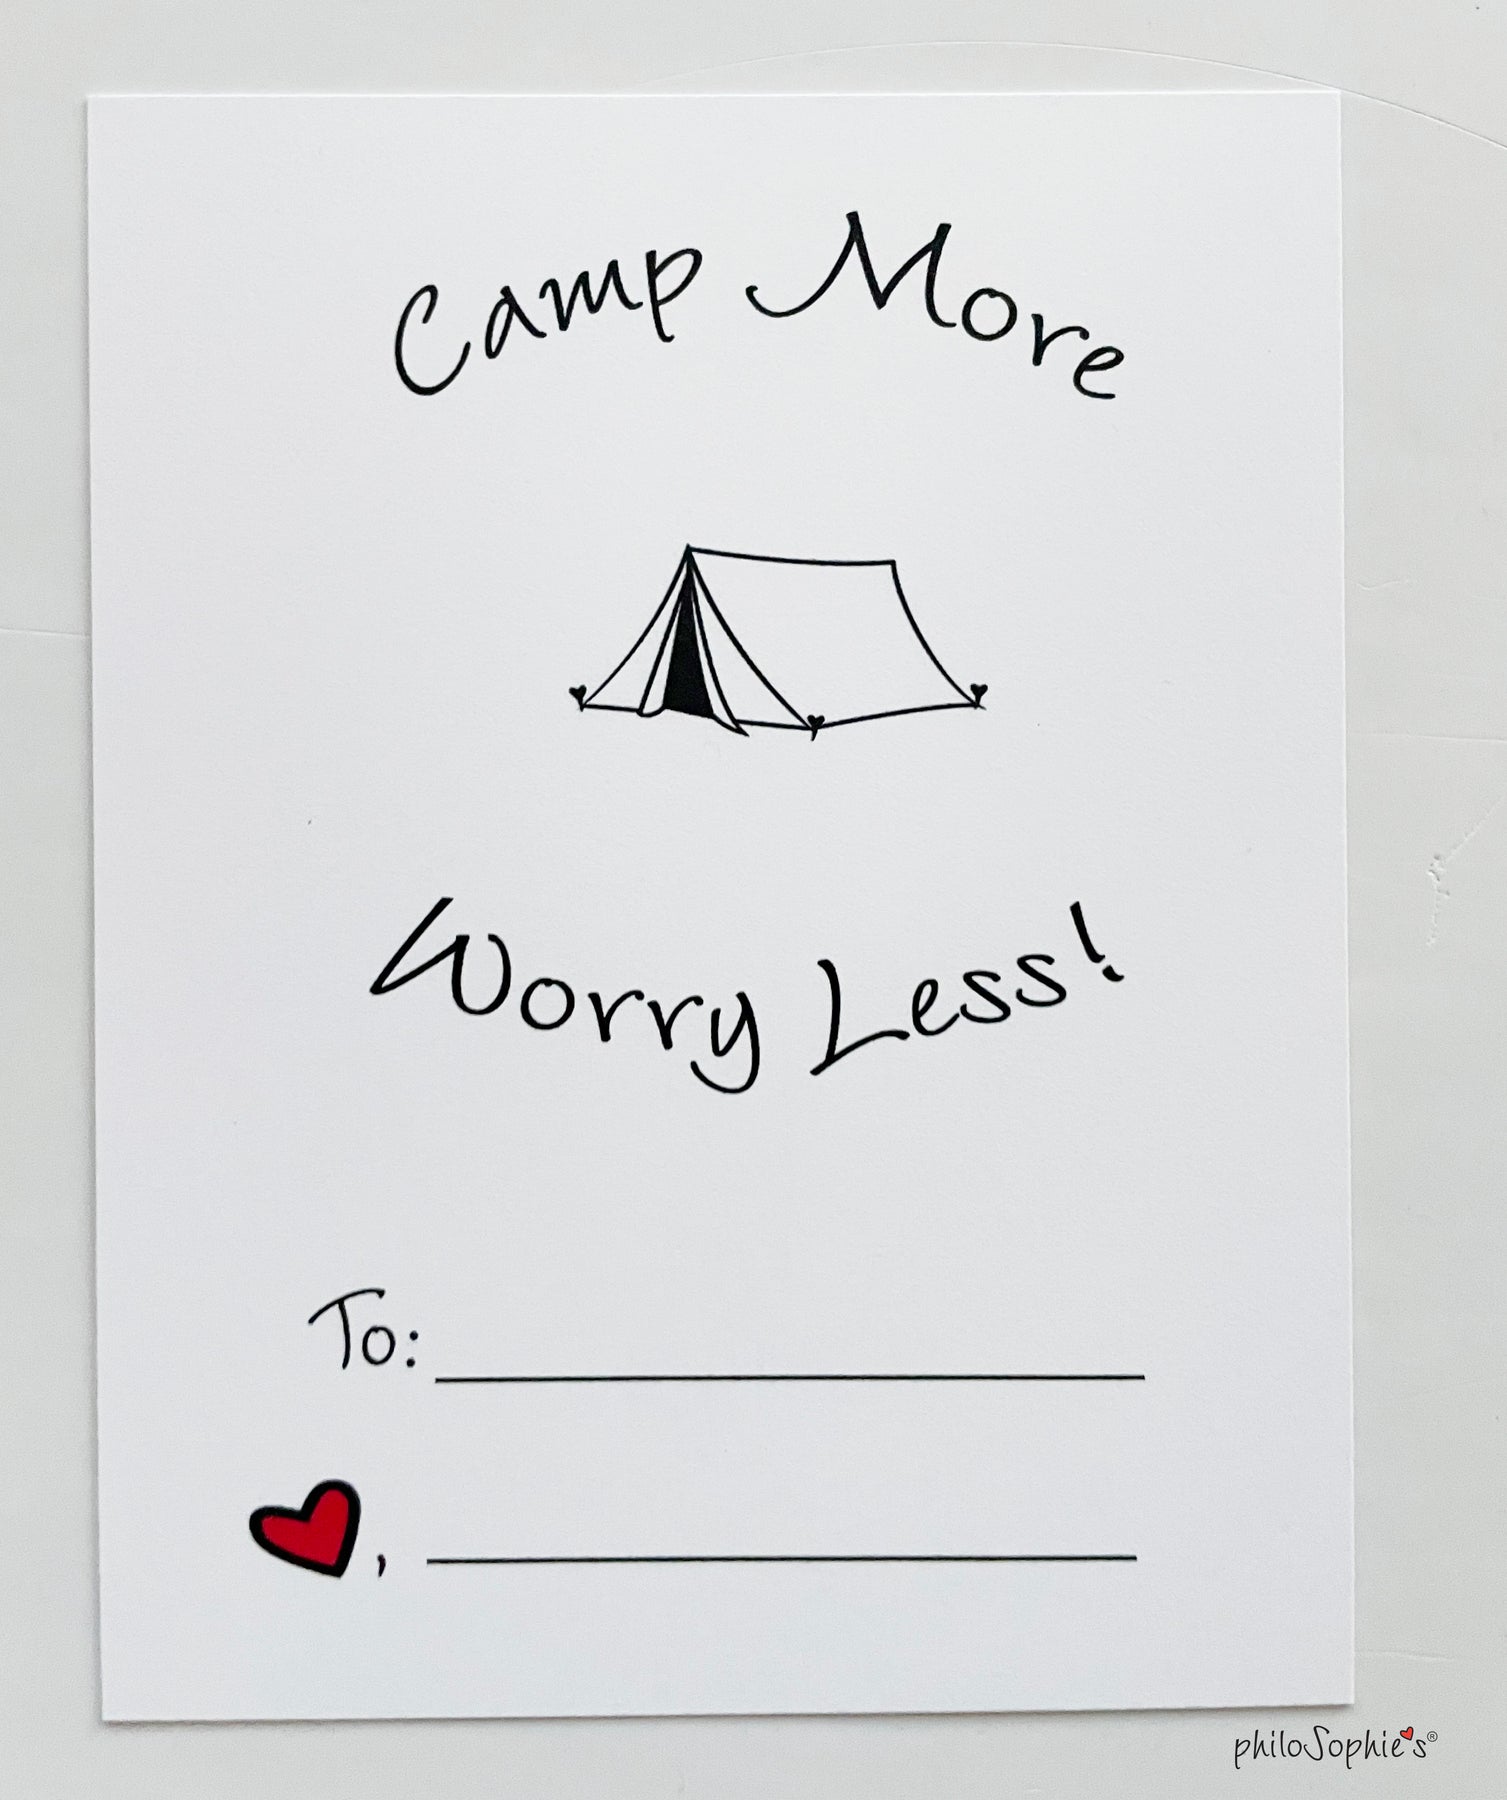 Camp More
Worry Less!
To:
,
philoSophie's®